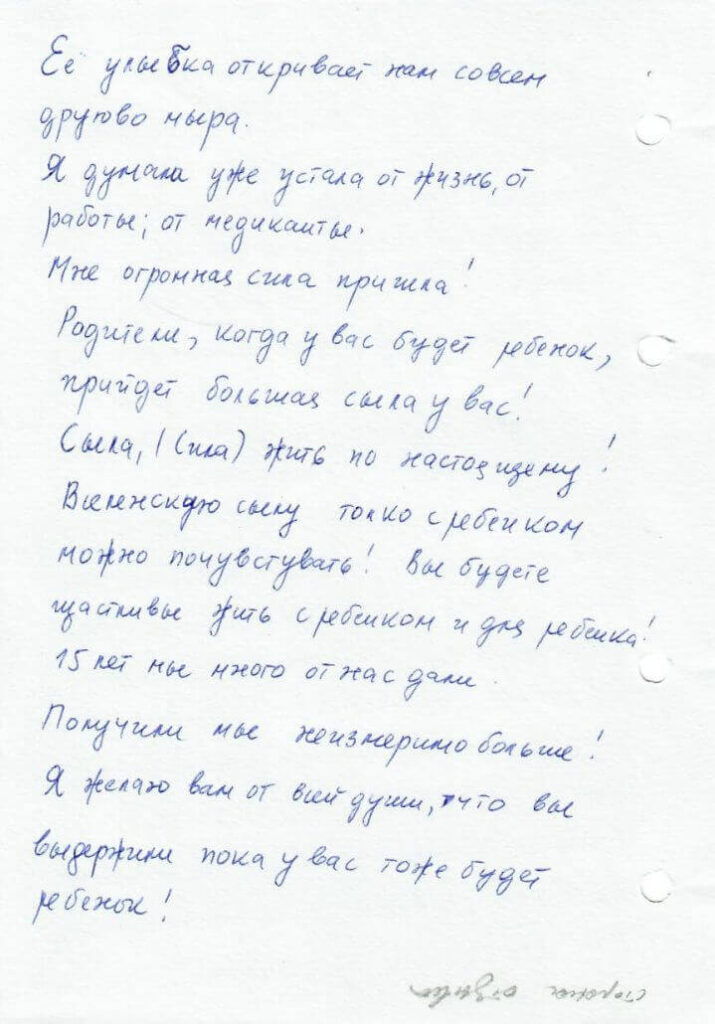 Её улыбка открывает нам совсем
друтово мыра.
Я думала уже устала от жизнь, от
работы; от медиканты.
Мне огромная сила пришла!
Родители, когда у вас будет ребенок,
прийдет большая сыла у вас!
Сыла, ! (Сила) жить по настоящему!
сылу толко с ребенком
можно почувстувать! Вы будете
щастливые жить с ребенком и для ребенка!
15 лет мы много от нас дали.
Получили мы неизмеримо больше!
Я желаю вам от вшй души, что вы
выдержили пока у вас тоже будет
ребенок!